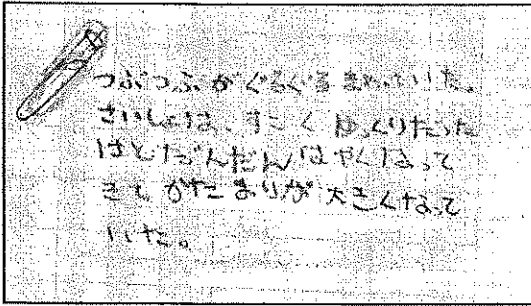 つぶつぶがぐるぐるまわっていた。
さいしょは、すごくゆっくりだった
けどだんだんはやくなって
きてかたまりが大きくなって
いた。